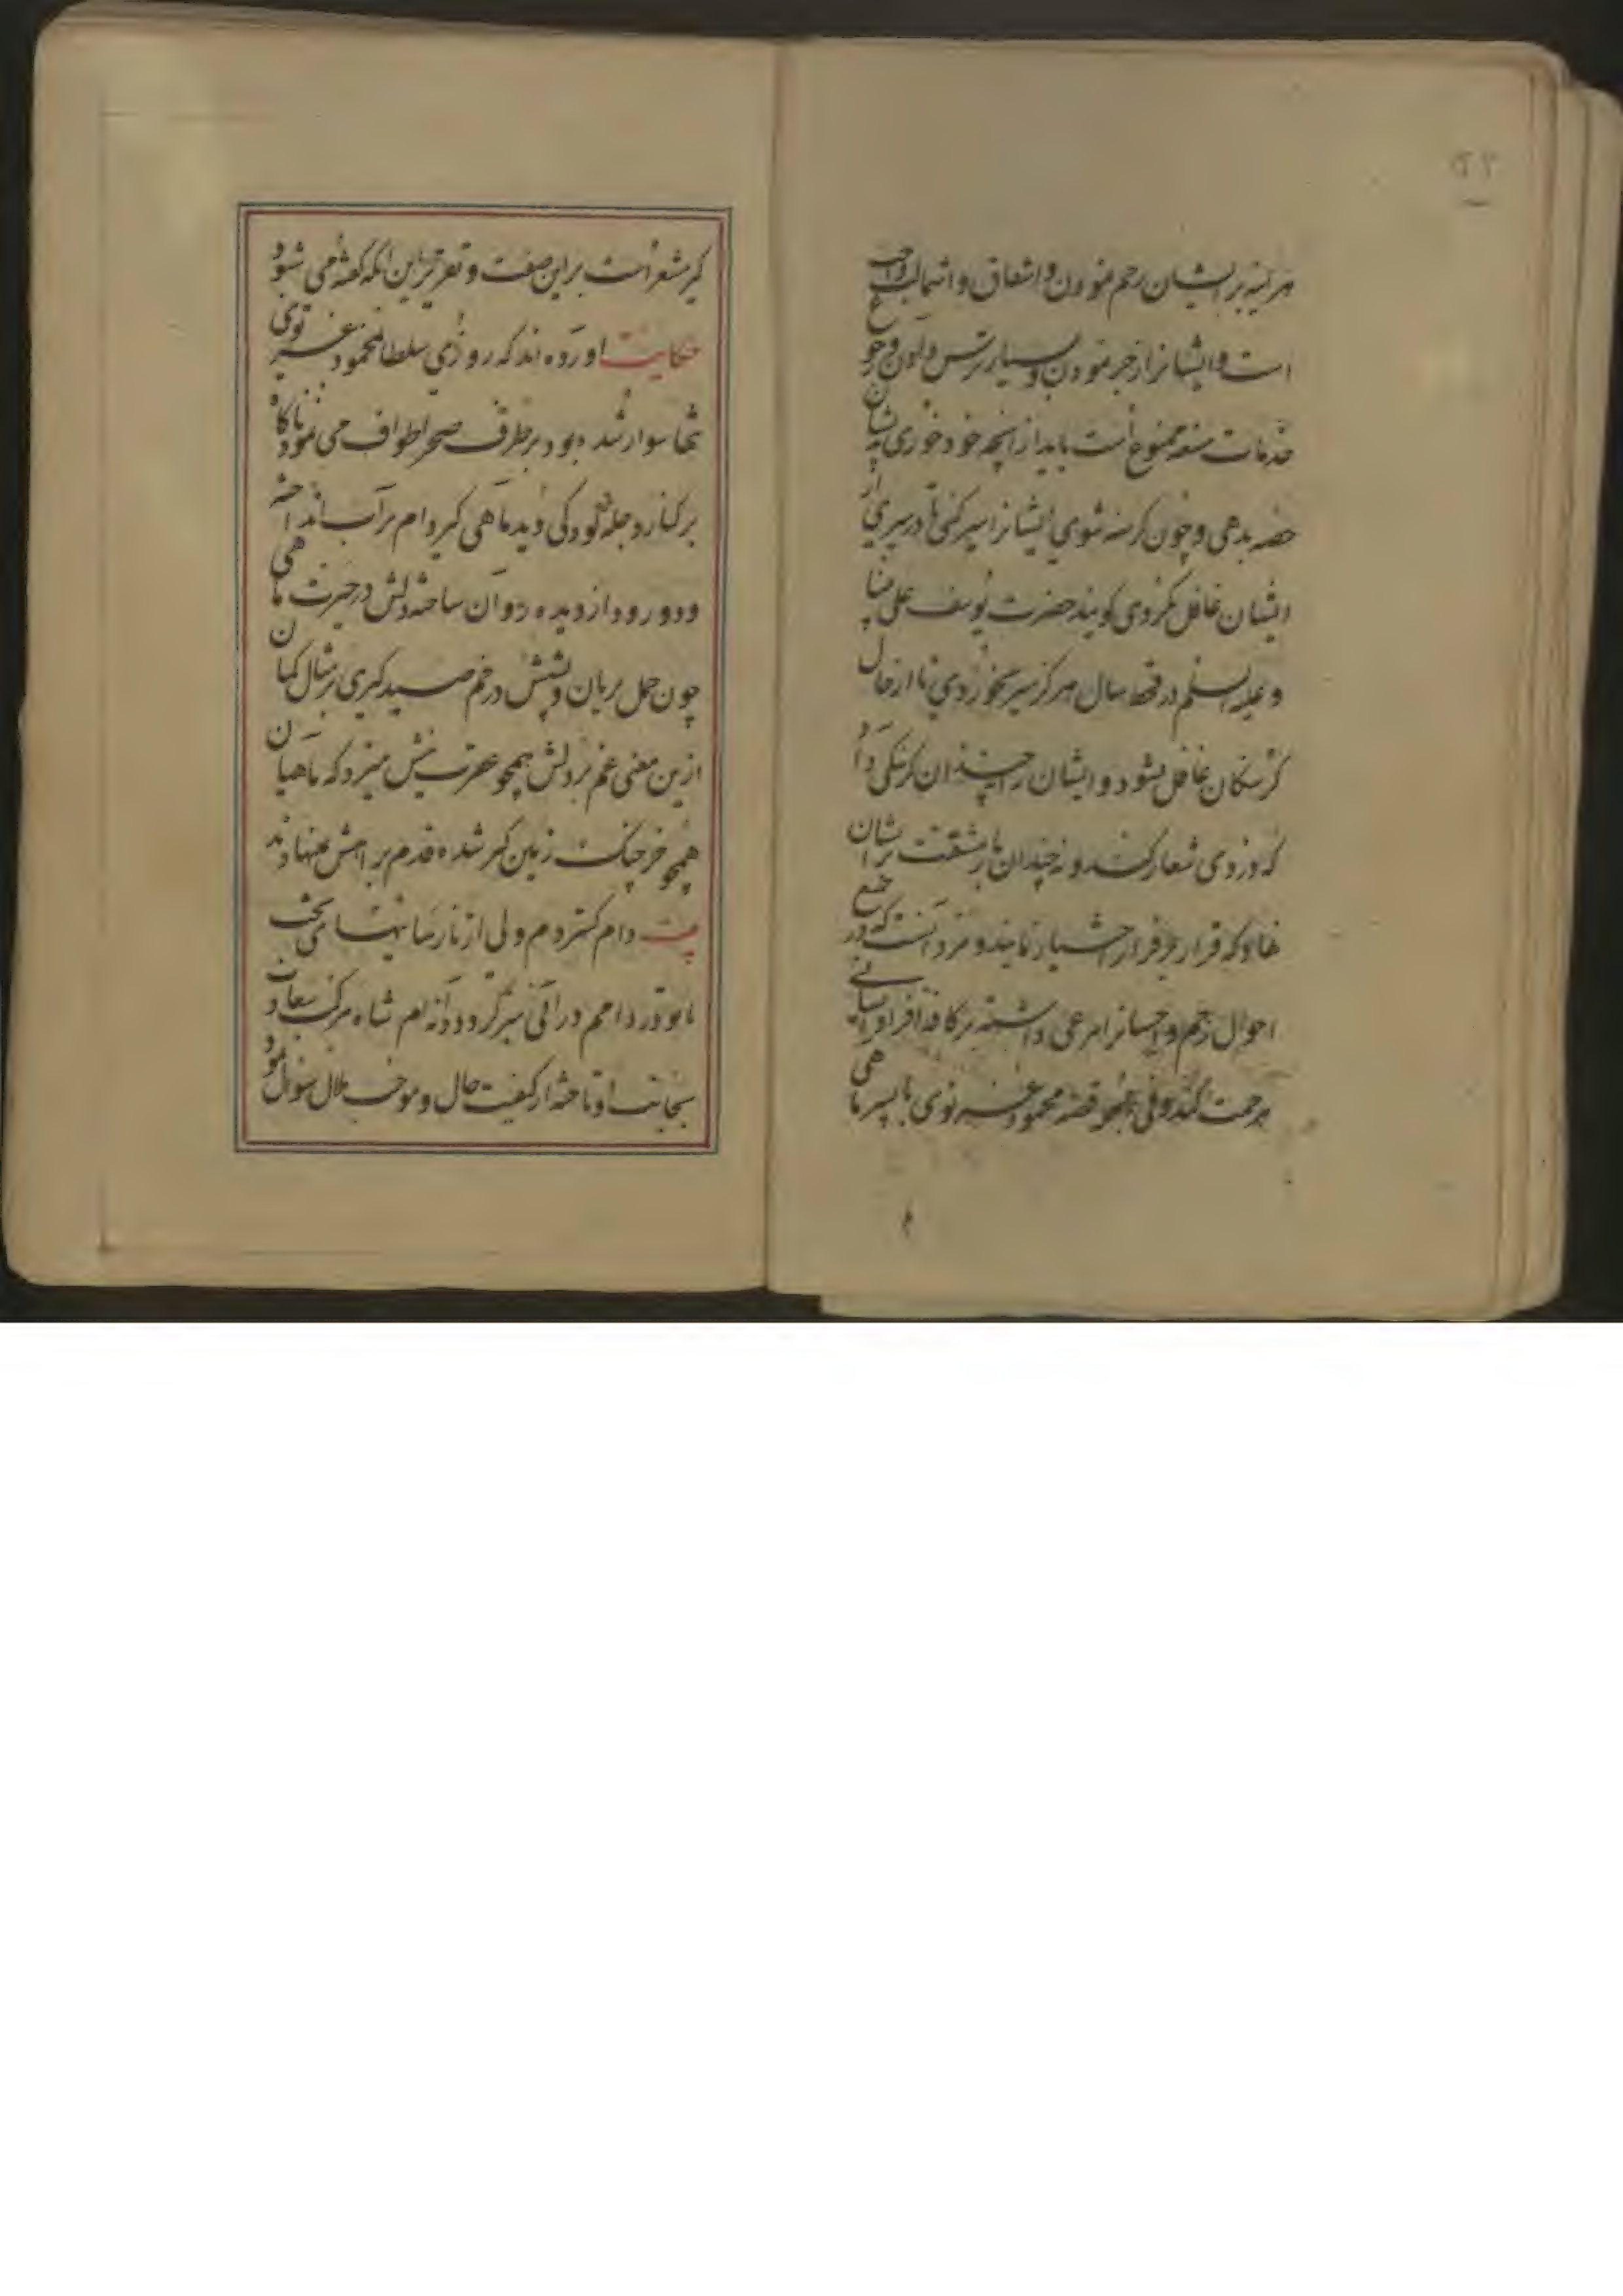 هر آینه بر ایشان رحم نمودن و اشفاق و استمالت واجب
است و ایشانرا زجر نمودن و بسیار ترس دادن و رجوع
خدمات صعبه ممنوع است باید از آنچه خود خوری بایشان
حصه بدهی و چون گرسنه شوی ایشانرا سیر کنی تا در سیری از
ایشان غافل نگردی گویند حضرت یوسف علی نبینا
و علیه السلم در قحط سال هرگز سیر نخوردی تا از حال
گرسنگان غافل نشود و ایشان را چندان گرسنگی دا
که دزدی شعار کنند و نه چندان بار مشقت بر ایشان
نهاد که قرار بر فرار اختیار نمایند و مرد آنست که در جمیع
احوال رحم و احسانرا مرعی داشته بر کافه افراد انسانی
مرحمت کند ولی همچو قصه محمود غزنوی با پسر ماهی
گیر مشعر است بر این صفت و تقریر این آنکه گفته می شود
حکایت آورده اند که روزی سلطان محمود غزنوی
تنها سوار شده بود بر طرف صحرا طواف می نمود ناگاه
بر کنار دجله کودکی دید ماهی گیر دام بر آب انداخته
و دو رود از دیده روان ساخته دلش در حیرت ماهی
چون حمل بریان و پشتش در خم صید گیری بر مثال کمان
ازین معنی غم بر دلش همچو عقرب نیش میزد که ماهیان
همچو خرچنگ زمین گیر شده قدم بر آتش مینهادند
بیت دام گستردم ولی از نارسائیهای بخت
تا بود در دامم در افتی سبز گردد دانه ام شاه مرکب سعادت
بجانب او تاخته از کیفیت حال و موجب ملال سوال نمود